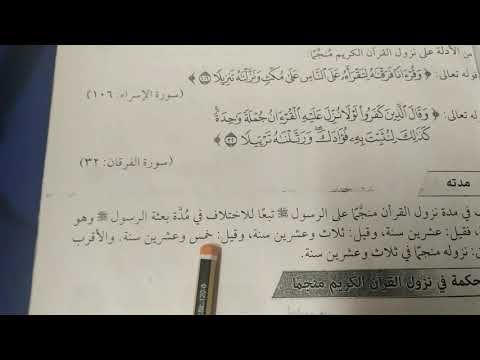 من الأدلة على نزول القرآن الكريم مُنجَّمًا:
قوله تعالى: ﴿ وَقُرْءَانًا فَرَقْنَٰهُ لِتَقْرَأَهُۥ عَلَى ٱلنَّاسِ عَلَىٰ مُكْثٍ وَنَزَّلْنَٰهُ تَنزِيلًا ١٠٦ ﴾
(سورة الإسراء: ١٠٦)
تعالى: ﴿ وَقَالَ ٱلَّذِينَ كَفَرُوا۟ لَوْلَا نُزِّلَ عَلَيْهِ ٱلْقُرْءَانُ جُمْلَةً وَٰحِدَةً
كَذَٰلِكَ لِنُثَبِّتَ بِهِۦ فُؤَادَكَ وَرَتَّلْنَٰهُ تَرْتِيلًا ٣٢ ﴾
(سورة الفرقان: ٣٢)
مدته
ف في مدة نزول القرآن منجَّمًا على الرسول ﷺ تبعًا للاختلاف في مُدَّة بعثة الرسول ﷺ وهو
فقيل: عشرين سنة، وقيل: ثلاث وعشرين سنة، وقيل: خمس وعشرين سنة. والأقرب
: نزوله منجمًا في ثلاث وعشرين سنة.
حكمة في نزول القرآن الكريم منجمًا